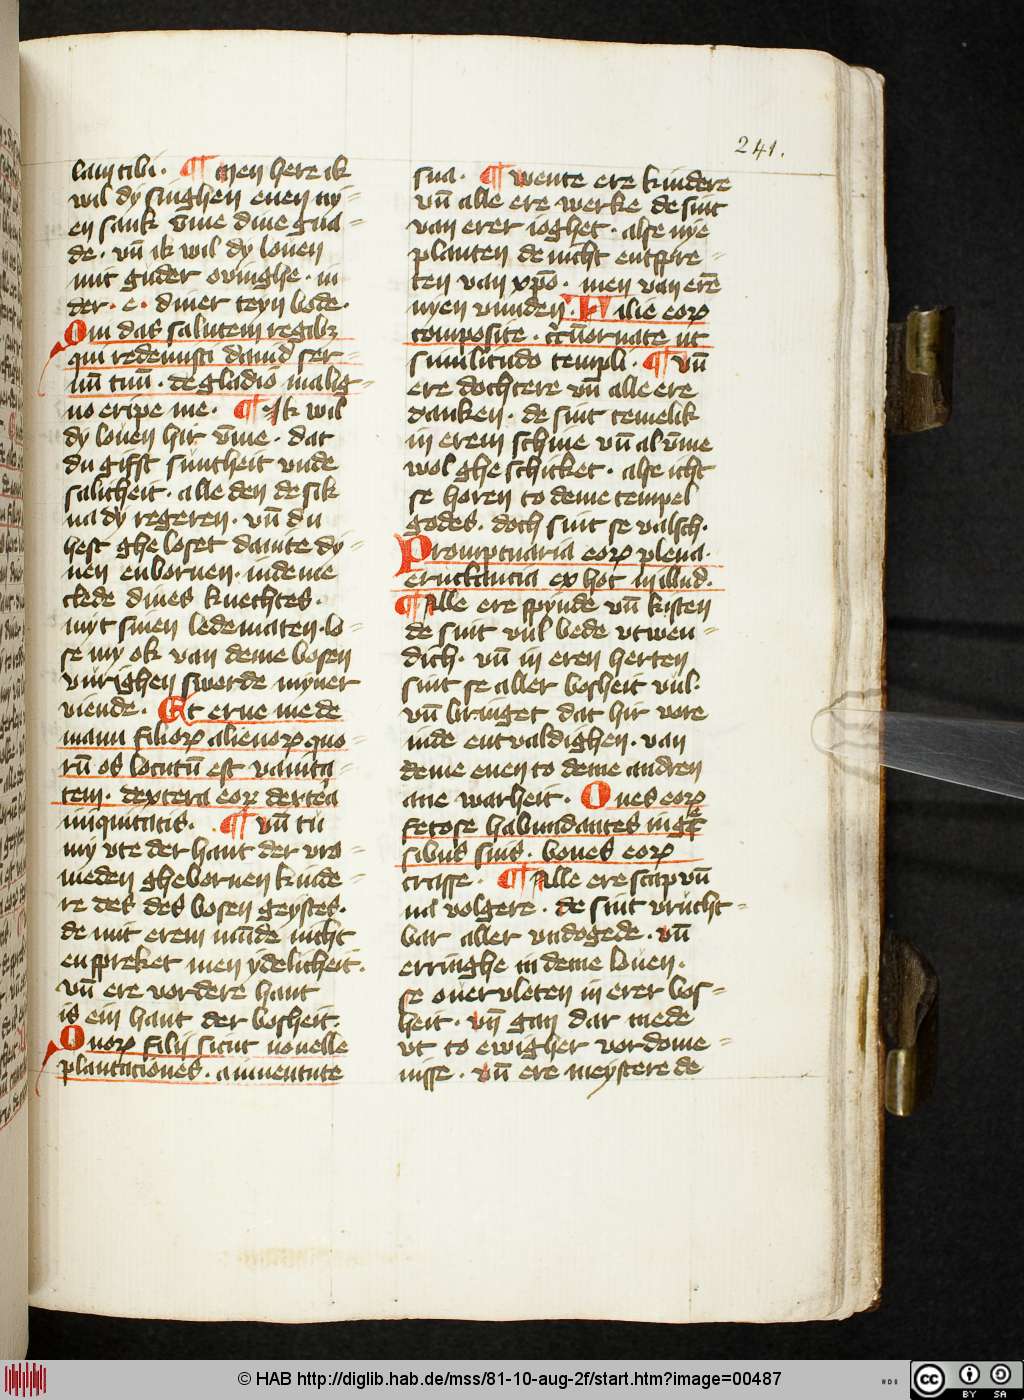 241.
lam tibi. ¶ men here ik
wil dy singhen enen ny=
en sank vm̄e dine gna=
de. vn̄ ik wil dy louen
mit guder ouinghe. in
der. e. diner teyn bode.
Qui das salutem regibꝫ
qui redemisti dauid ser=
uū tuū. de gladio malig=
no eripe me. ¶ Ik wil
dy louen hir vm̄e. dat
du gifst suntheit vnde
salicheit. alle den de sik
na dy regeren. vn̄ du
hest ghe loset dauite dy=
nen enbornen. inde me
clede dines knechtes.
myt sinen ledematen. lo=
se my ok van deme bosen
vurighen swerde myner
viende. Et erue me de
manu filioꝝ alienoꝝ. quo=
rū os locutū est vanita=
tem. dextera eoꝝ dextera
iniquitatis. ¶ vn̄ tu
my vte der hant der vro=
meden ghebornen kinde=
re des des bosen geystes.
de mit erem mūde nicht
en spreket men ydelicheit.
vn̄ ere vordere hant
is ein hant der bosheit.
Quoꝝ filij sicut nouelle
plantaciones. a iuuentute
sua. ¶ wente ere kindere
vn̄ alle ere werke de sint
van erer ioghet. alse nye
planten de nicht entspre=
ten van xp̄o. men van erē
nyen vunden. Filie eoꝝ
composite. cͬcūornate ut
similitudo templi. ¶ vn̄
ere dochtere vn̄ alle ere
danken. de sint temelik
in erem schine vn̄ al vm̄e
wol ghe schicket. alse icht
se horen to deme tempel
godes. doch sint se valsch.
Promptuaria eoꝝ plena.
eructancia ex hoc in illud.
¶ Alle ere spynde vn̄ kisten
de sint vul bede vtwen=
dich. vn̄ in eren herten
sint se aller bosheit vul.
vn̄ bringet dat hir vore
inde entvaldighen. van
deme enen to deme andren
ane warheit. Oues eoꝝ
fetose habundantes in gͬes
sibus suis. boues eoꝝ
crasse. ¶ Alle ere scap vn̄
na volgere. de sint vrucht=
bar aller vndogede. vn̄
erringhe in deme louen.
se ouervleten in erer bos=
heit. vn̄ gan dar mede
vt to ewigher vordome=
nisse. vn̄ ere meystere de
© HAB http://diglib.hab.de/mss/81-10-aug-2f/start.htm?image=00487
cc BY SA